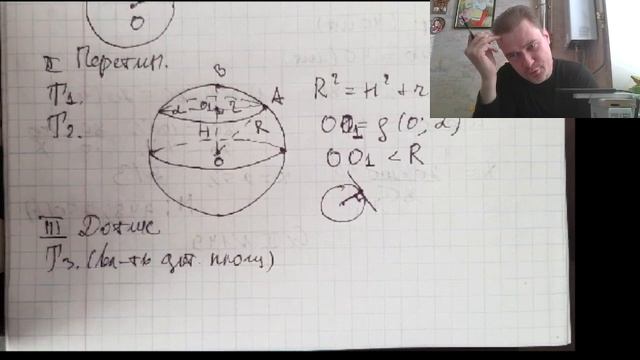 O
II Перетин.
T1.
T2.
B
α O1 r A
H R
O
R² = H² + r
OO1 = ρ (O; α)
OO1 < R
III Дотик
T3. (вл-ть дот. площ)